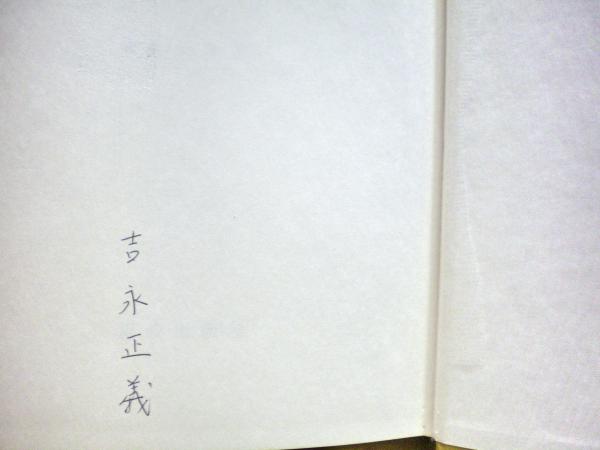 吉永正義